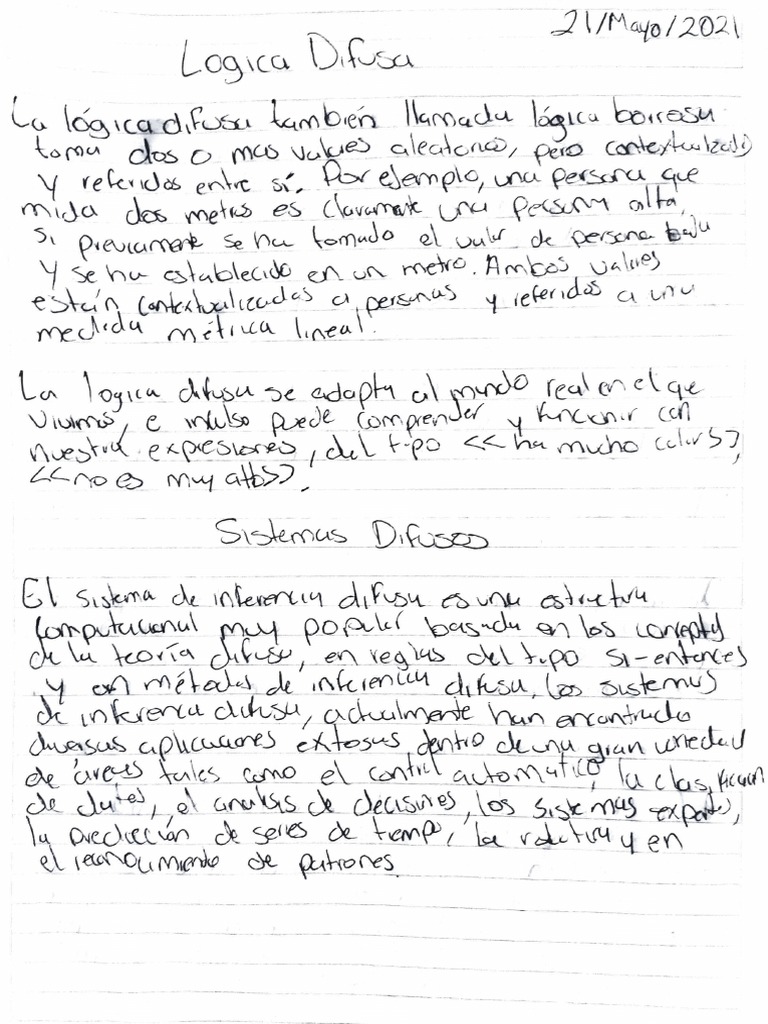 21/Mayo/2021
Logica Difusa
La lógica difusa también llamada lógica borrosa
toma dos o mas valores aleatorios, pero contextualizados
y referidos entre sí. Por ejemplo, una persona que
mida dos metros es claramente una persona alta,
si previamente se ha tomado el valor de persona baja
y se ha establecido en un metro. Ambos valores
están contextualizados a personas y referidos a una
medida métrica lineal.
La logica difusa se adapta al mundo real en el que
vivimos, e incluso puede comprender y funcionar con
nuestra expresiones, del tipo <<ha mucho calor>>,
<<no es muy alto>>.
Sistemas Difusos
El sistema de inferencia difusa es una estructura
computacional muy popular basada en los conceptos
de la teoría difusa, en reglas del tipo si-entonces
y en métodos de inferencia difusa, los sistemas
de inferencia difusa, actualmente han encontrado
diversas aplicaciones exitosas dentro de una gran variedad
de áreas tales como el control automatico, la clasificacion
de datos, el analisis de decisiones, los sistemas expertos,
la predicción de series de tiempo, la robotica y en
el reconocimiento de patrones.